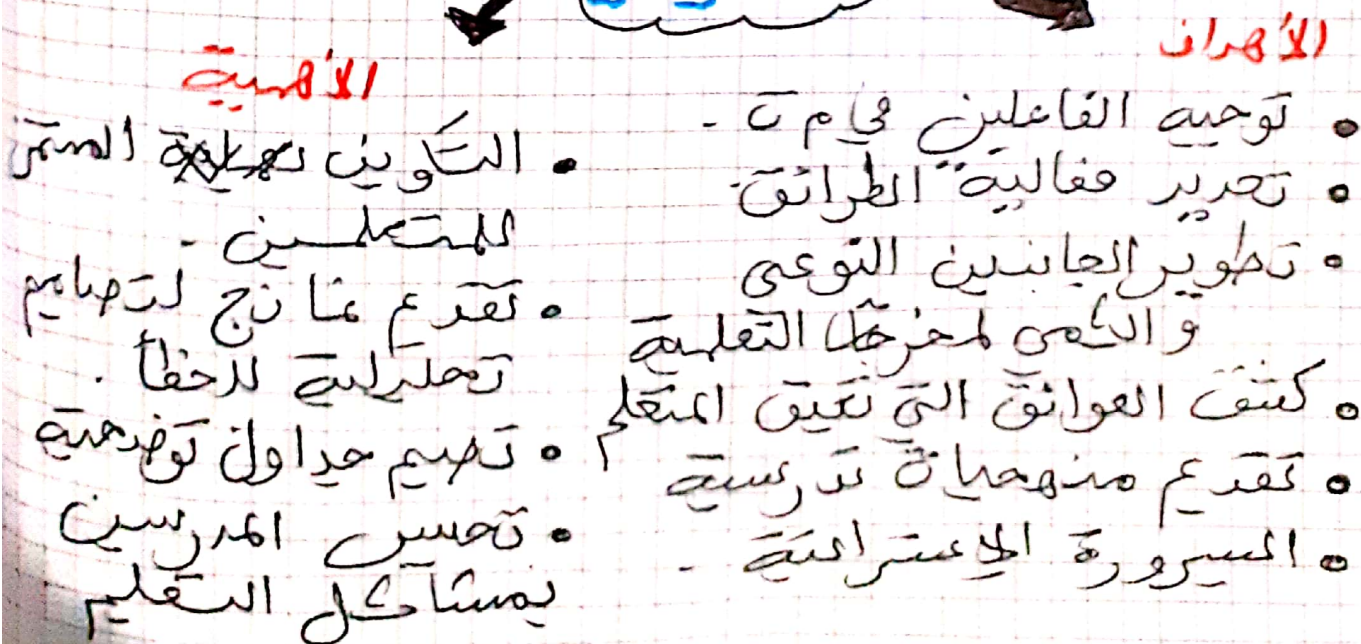 الأهداف
• توجيه الفاعلين في م ت.
• تحرير فعالية الطرائق.
• تطوير الجانبين النوعي
و الكمي لمخرجات التعلمية
• كشف العوائق التي تعيق المتعلم
• تقديم منهجيات تدريسية
• السيرورة الإعتراعية.
الأهمية
• التكوين المستمر
للمتعلمين.
• تقديم نماذج لتصاميم
تحليلية للأخطأ.
• تصميم جداول توضحية
• تحسيس المدرسين
بمشاكل التعليم